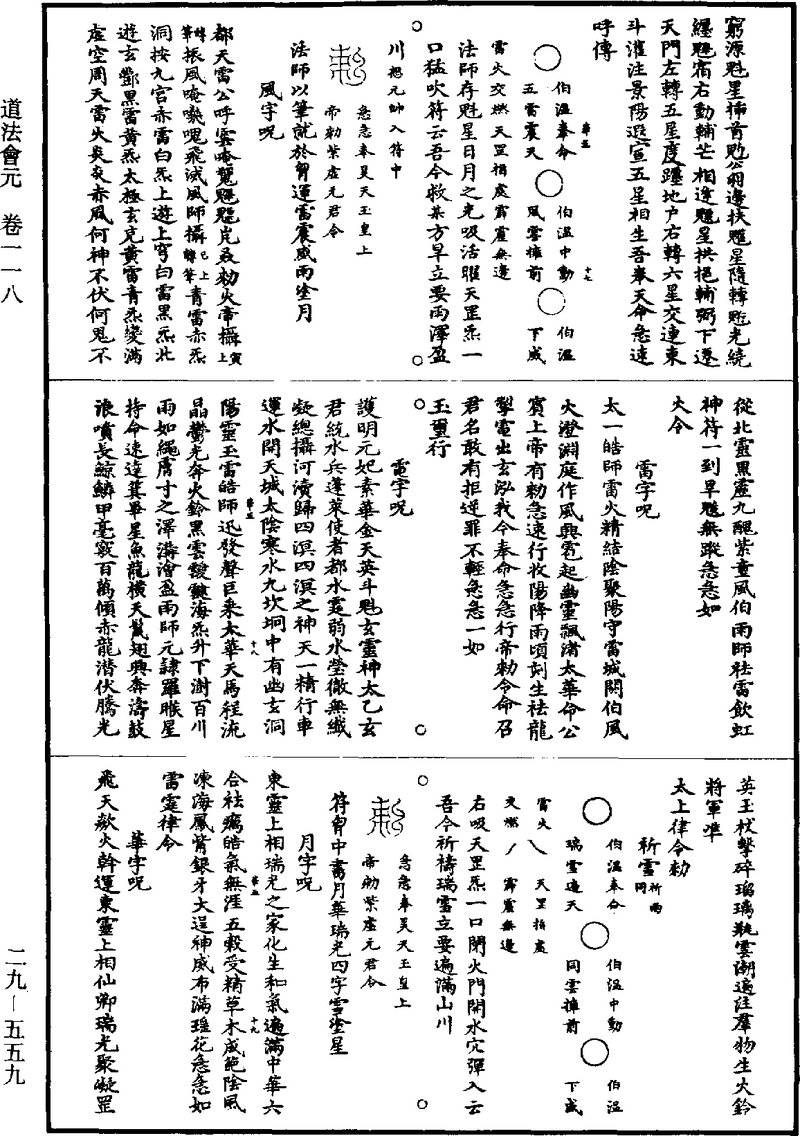 道法會元　卷一一八
二九－五五九
窮源魁星揷首魒公翊邊扶魓星隨轉魒光繞
纏魁宿右動輔芒相逢魓星拱挹輔弼下遷
天門左轉五星度躔地户右轉六星交連東
斗灌注景陽遐宣五星相生吾奉天命急速
呼傳
伯溫奉命
五雷震天
伯溫中動
風雲擁前
伯溫
下威
雷火交燃天罡指處霹靂無邊
法師存魁星日月之光吸活䐤天罡炁一
口猛吹符云吾今救某方旱立要雨澤盈
川
元帥入符中
急急奉昊天玉皇上
帝勑紫虛元君令
法師以筆就於胷運雷震風雨塗月
風字呪
都天雷公呼雲
勑火帝攝
振風
飛滅風師攝
青雷赤炁
洞按九宮赤雷白炁上遊上穹白雷黑炁北
遊玄酆黑雷黄炁太極玄充黄雷青炁變滿
虛空周天雷火炎炎赤風何神不伏何鬼不
從北靈黑靈九醜紫童風伯雨師祛雷飲虹
神符一到旱魃無蹤急急如
火令
雷字呪
太一皓師雷火精結陰聚陽守雷城關伯風
火澄淵庭作風興雹起幽靈飄渚太華命公
賓上帝有勑急速行收陽降雨頃刻生祛龍
掣電出玄泓我今奉命急急行帝勑令命召
君名敢有拒逆罪不輕急急一如
玉璽行
電字呪
護明元妃素華金天英斗魁玄靈神太乙玄
君統水兵蓬萊使者都水靈蒻水瑩徹無纖
凝總攝河瀆歸四溟四溟之神天一精行車
運水開天城太陰寒水九坎垌中有幽玄洞
陽靈玉雷皓師迅發聲巨乘太華天馬程流
晶鬱光奔火鈴黑雲靉靆海炁升下澍百川
雨如繩膚寸之澤濤澮盈雨師元諱羅睺星
持命速達箕畢星魚龍橫天鬣翅興奔濤鼓
浪噴長鯨鱗甲毫竅百萬傾赤龍潛伏騰光
英玉杖擊碎瑠璃瓶雲潮遍注羣物生火鈴
將軍準
太上律令勑
祈雪祈雨同
伯溫奉命
瑞雪遍天
伯溫中動
同雲擁前
伯溫
下威
雷火交燃
天罡指處
霹靂無邊
右吸天罡炁一口閉火門開水穴彈入云
吾今祈禱瑞雪立要遍滿山川
急急奉昊天玉皇上
帝勑紫虛元君令
符胷中書月華瑞光四字雪塗星
月字呪
東靈上相瑞光之家化生和氣遍滿中華六
合祛癘皓氣無涯五穀受精草木成葩陰風
凍海鳳觜銀牙大逞神威布滿瑶花急急如
雷霆律令
華字呪
飛天歘火斡運東靈上相仙卿瑞光聚凝罡